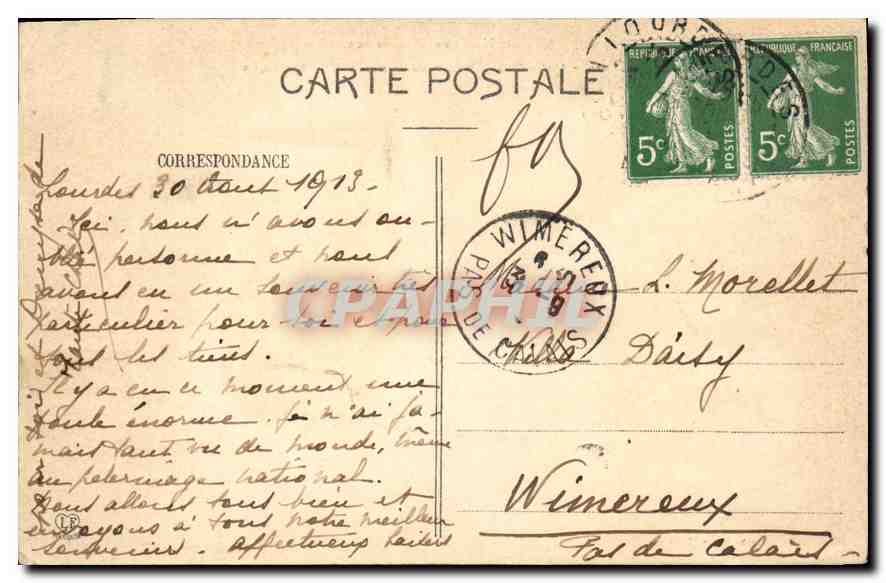 CARTE POSTALE
CORRESPONDANCE
Lourdes 30 Aout 1913-
Ici, nous n'avons ou-
blié personne et nous
avons eu un souvenir très
particulier pour toi et pour
tous les tiens.
Il y a en ce moment une
foule énorme. Je n'ai ja-
mais tant vu de monde, même
au pelerinage national.
Nous allons tous bien et
envoyons à tous notre meilleur
souvenir. affectueux baisers
LF
REPUBLIQUE FRANÇAISE
5c
POSTES
REPUBLIQUE FRANÇAISE
5c
POSTES
LOURDES
WIMEREUX
PAS DE CALAIS
CPAPHIL
Madame L. Morellet
Villa Daisy
Wimereux
Pas de Calais-